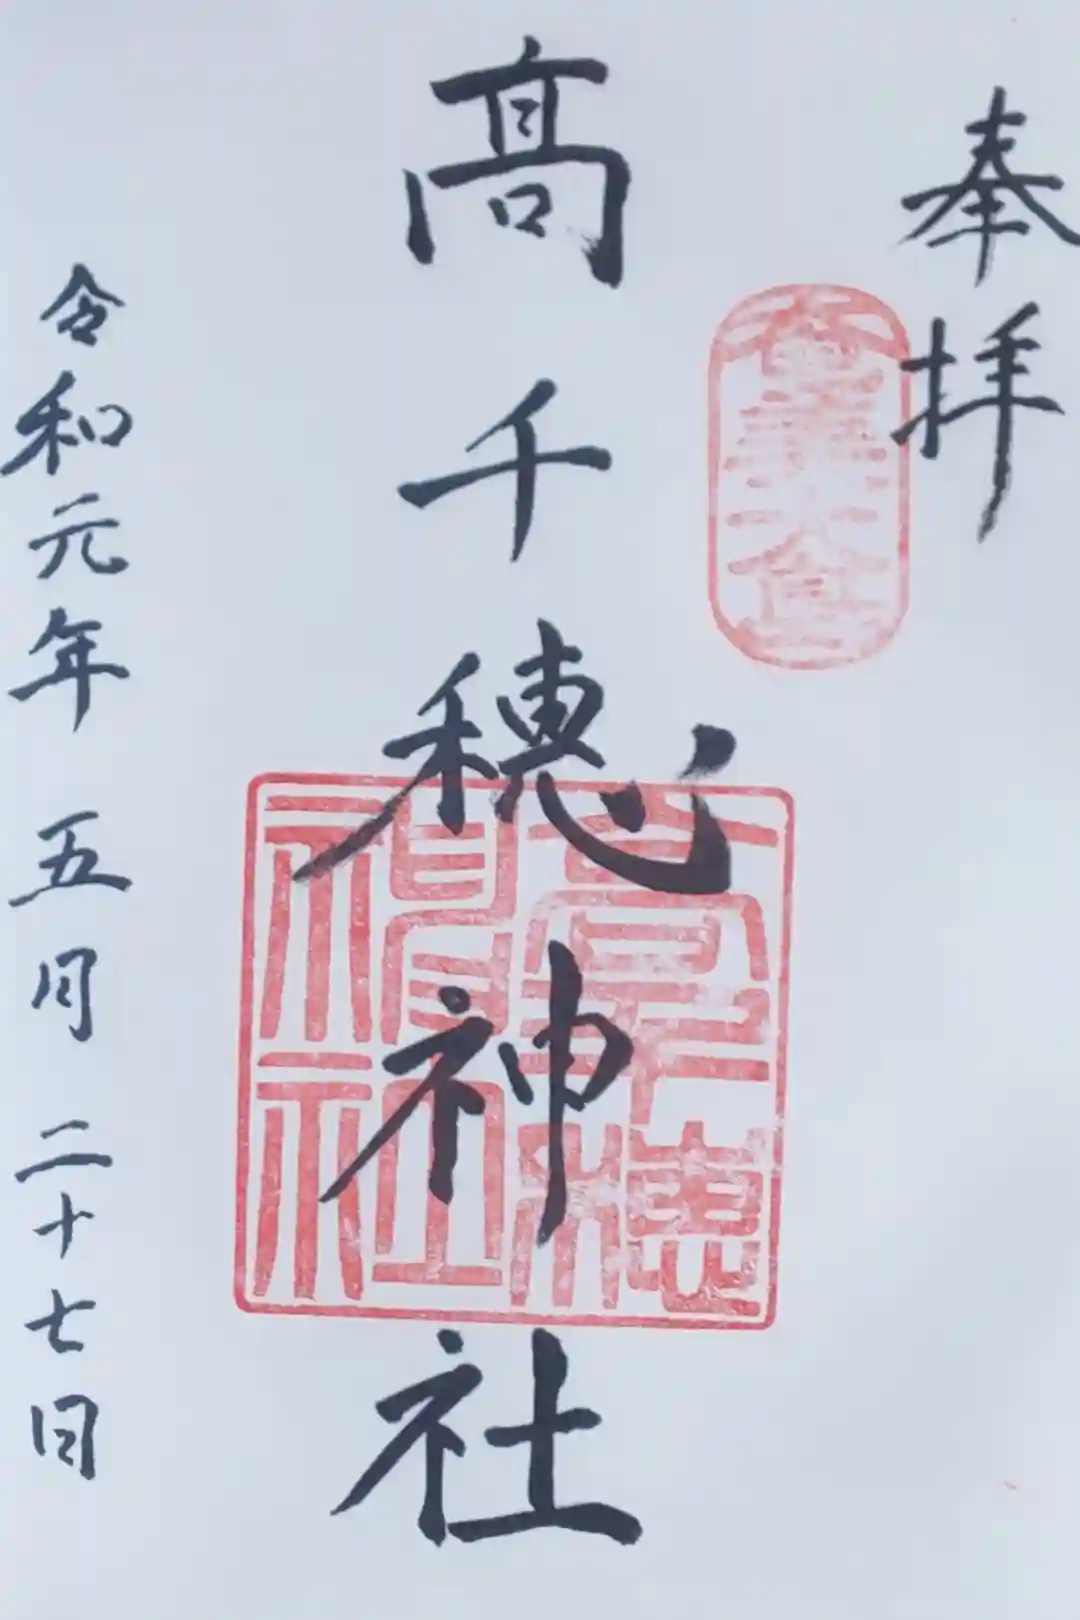 奉拝
髙千穂神社
高千穂神社
令和元年 五月 二十七日